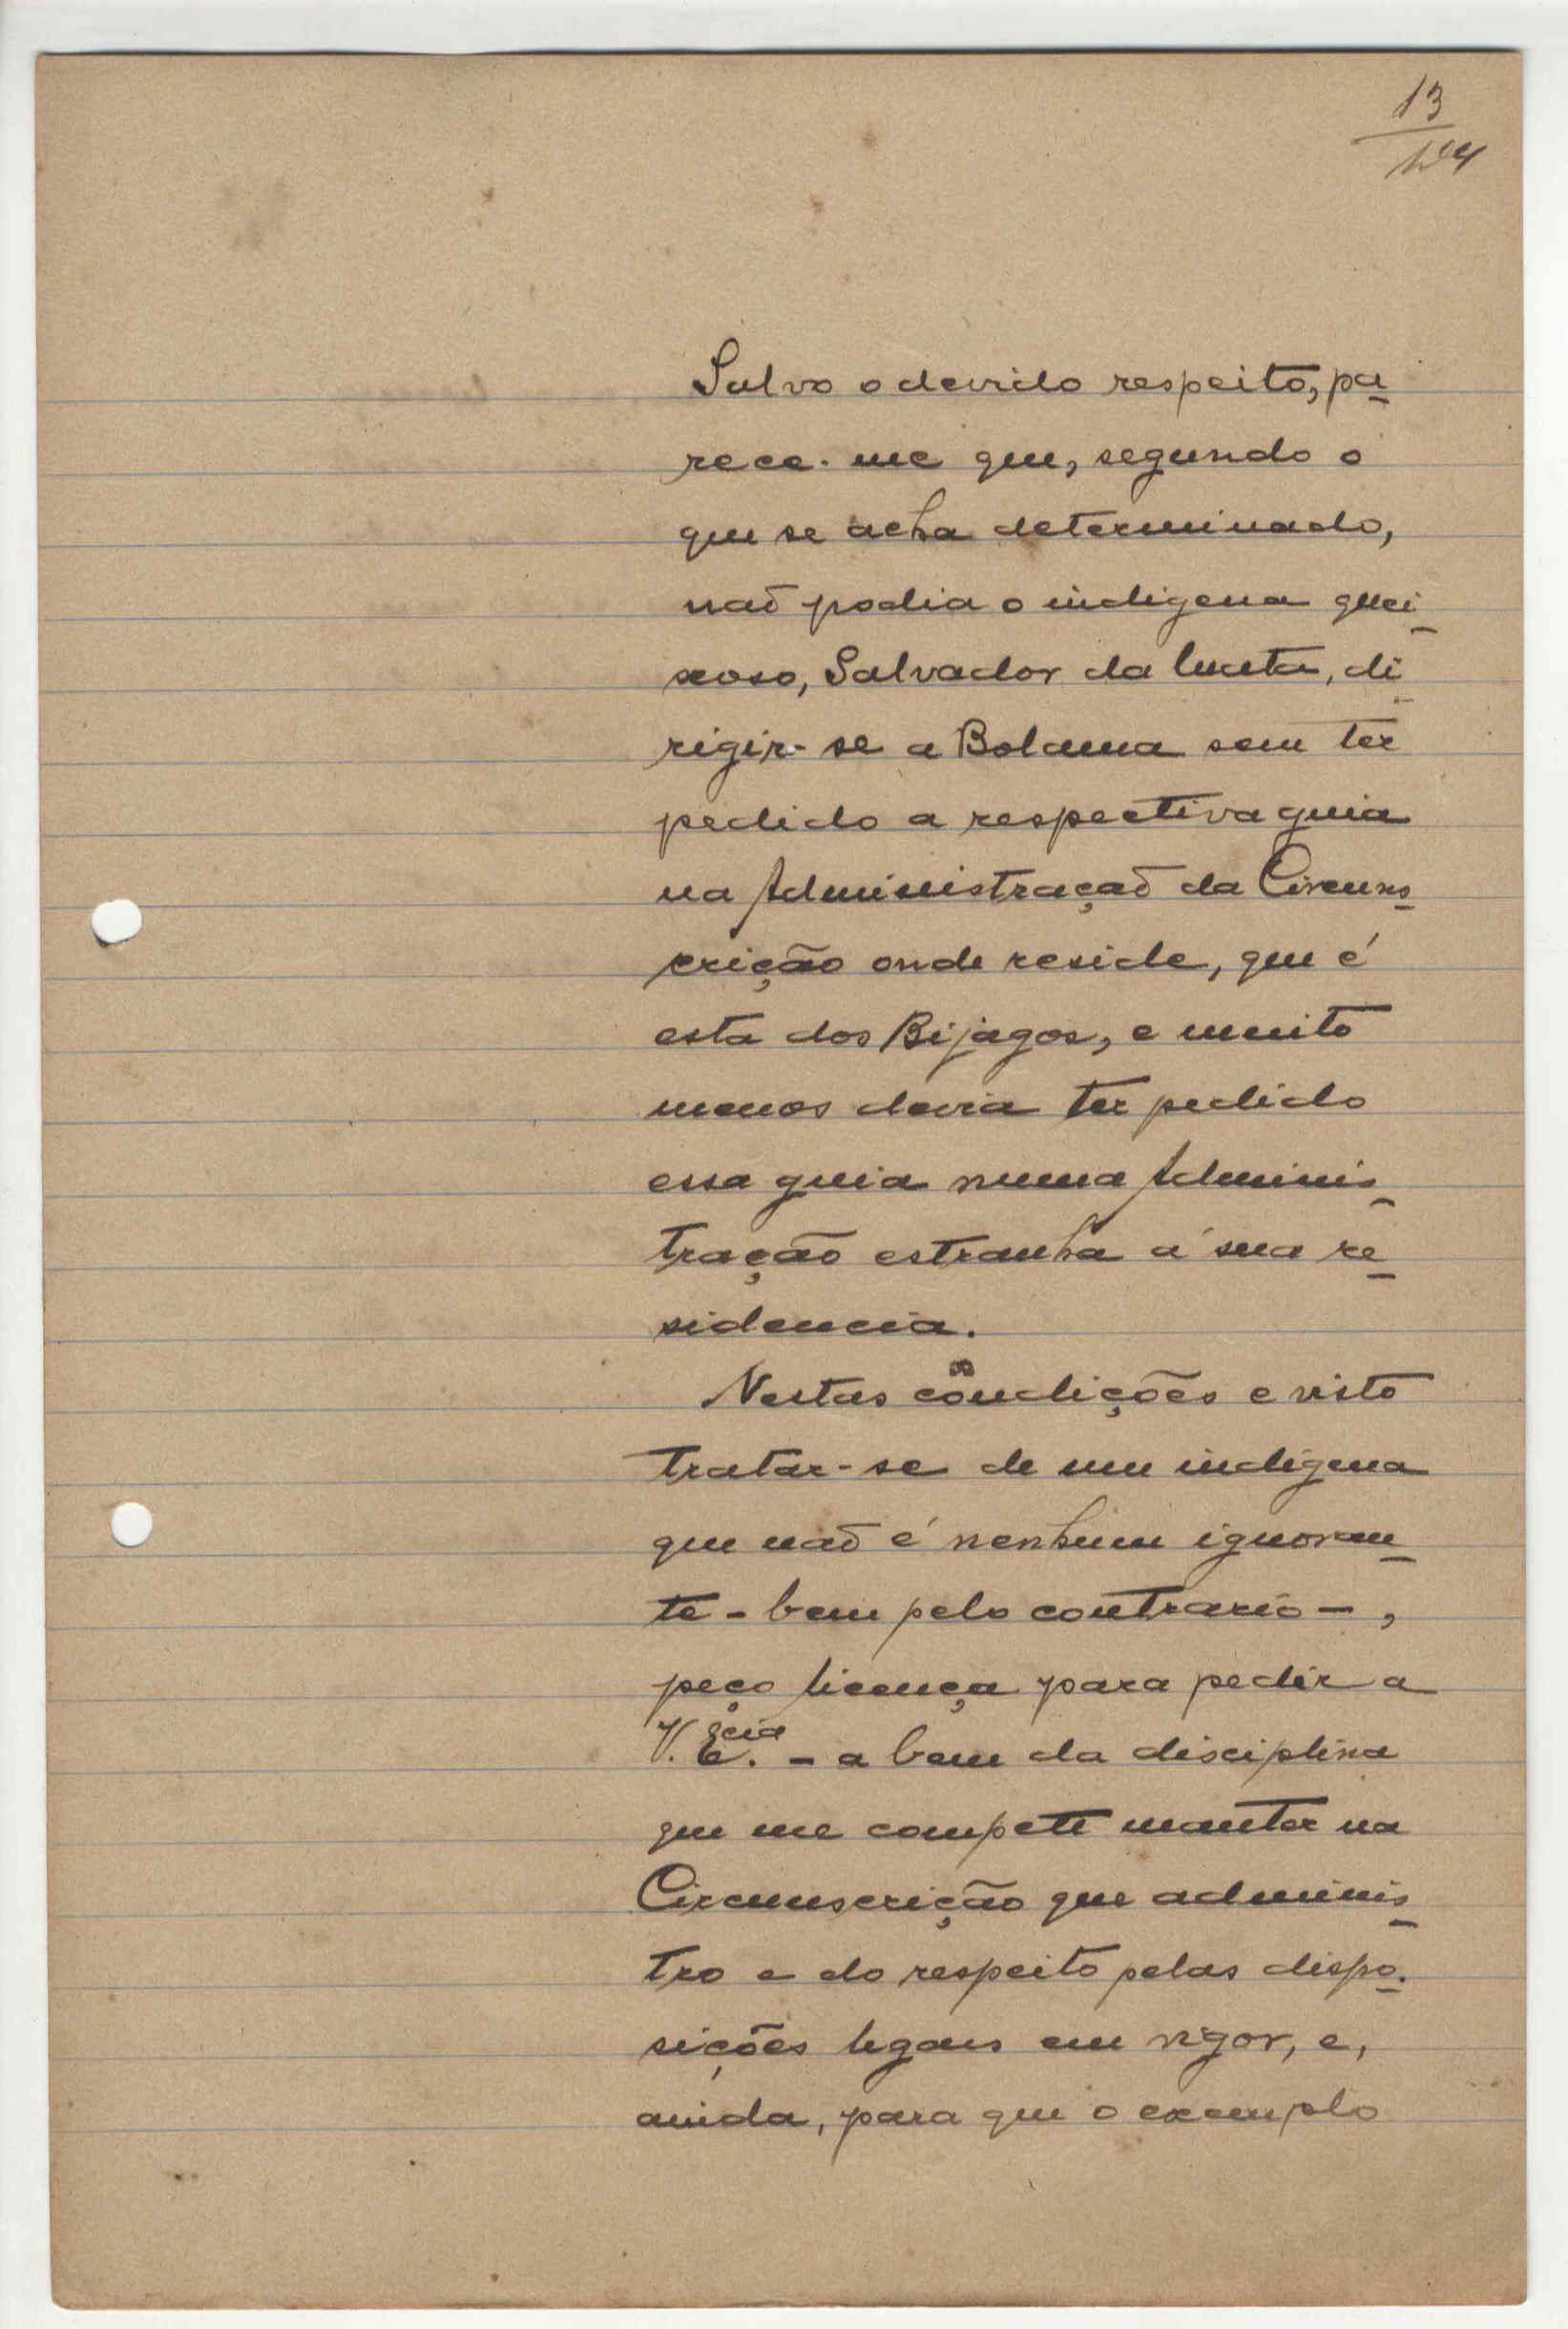 13
Salvo o devido respeito, pa-
rece-me que, segundo o
que se acha determinado,
naõ podia o indigena quei-
xoso, Salvador da Cunta, di-
rigir-se a Bolama sem ter
pedido a respectiva guia
na Administraçaõ da Circuns-
crição onde reside, que é
esta dos Bijagos, e muito
menos devia ter pedido
essa guia numa Adminis-
tração estranha á sua re-
sidencia.
Nestas condições e visto
tratar-se de um indigena
que naõ é nenhum ignoran-
te - bem pelo contrario -,
peço licença para pedir a
V. Ecia. - a bem da disciplina
que me compete manter na
Circunscrição que adminis-
tro e do respeito pelas dispo-
sições legais em vigor, e,
ainda, para que o exemplo